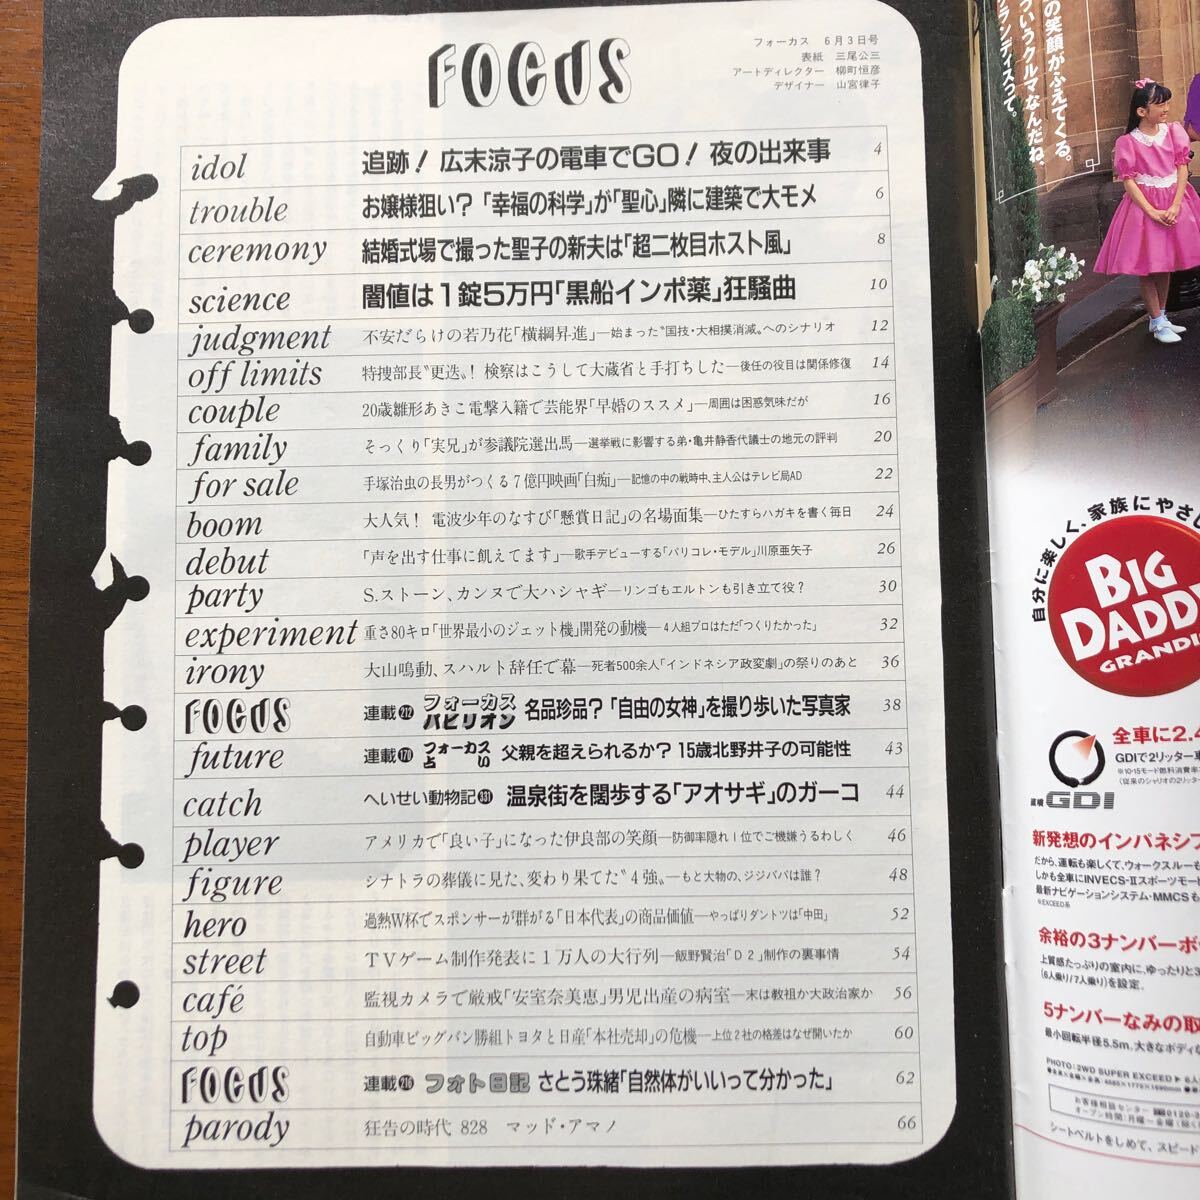 FOCUS
フォーカス 6月3日号
表紙 三尾公三
アートディレクター 柳町恒彦
デザイナー 山宮律子
idol 追跡！ 広末涼子の電車でGO！ 夜の出来事 4
trouble お嬢様狙い？「幸福の科学」が「聖心」隣に建築で大モメ 6
ceremony 結婚式場で撮った聖子の新夫は「超二枚目ホスト風」 8
science 闇値は1錠5万円「黒船インポ薬」狂騒曲 10
judgment 不安だらけの若乃花「横綱昇進」―始まった〝国技・大相撲消滅〟へのシナリオ 12
off limits 特捜部長〝更迭〟！ 検察はこうして大蔵省と手打ちした―後任の役目は関係修復 14
couple 20歳雛形あきこ電撃入籍で芸能界「早婚のススメ」―周囲は困惑気味だが 16
family そっくり「実兄」が参議院選出馬―選挙戦に影響する弟・亀井静香代議士の地元の評判 20
for sale 手塚治虫の長男がつくる7億円映画「白痴」―記憶の中の戦時中、主人公はテレビ局AD 22
boom 大人気！ 電波少年のなすび「懸賞日記」の名場面集―ひたすらハガキを書く毎日 24
debut 「声を出す仕事に飢えてます」―歌手デビューする「パリコレ・モデル」川原亜矢子 26
party S.ストーン、カンヌで大ハシャギ―リンゴもエルトンも引き立て役？ 30
experiment 重さ80キロ「世界最小のジェット機」開発の動機―4人組プロはただ「つくりたかった」 32
irony 大山鳴動、スハルト辞任で幕―死者500余人「インドネシア政変劇」の祭りのあと 36
FOCUS 連載212 フォーカスパビリオン 名品珍品？「自由の女神」を撮り歩いた写真家 38
future 連載170 フォーカス占い 父親を超えられるか？ 15歳北野井子の可能性 43
catch へいせい動物記 温泉街を闊歩する「アオサギ」のガーコ 44
player アメリカで「良い子」になった伊良部の笑顔―防御率隠れ1位でご機嫌うるわしく 46
figure シナトラの葬儀に見た、変わり果てた〝4強〟―もと大物の、ジジババは誰？ 48
hero 過熱W杯でスポンサーが群がる「日本代表」の商品価値―やっぱりダントツは「中田」 52
street TVゲーム制作発表に1万人の大行列―飯野賢治「D2」制作の裏事情 54
café 監視カメラで厳戒「安室奈美恵」男児出産の病室―末は教祖か大政治家か 56
top 自動車ビッグバン勝組トヨタと日産「本社売却」の危機―上位2社の格差はなぜ開いたか 60
FOCUS 連載216 フォト日記 さとう珠緒「自然体がいいって分かった」 62
parody 狂告の時代 828 マッド・アマノ 66
の笑顔がふえてくる。
ういうクルマなんだね、
ランディスって。
自分に楽しく、家族にやさし
BIG
DADDY
GRANDIS
全車に2.4
GDIで2リッター車
※10・15モード燃料消費率
(従来のシャリオの2リッター
直噴 GDI
新発想のインパネシフ
だから、運転も楽しくて、ウォークスルーも
しかも全車にINVECS-Ⅱスポーツモード
最新ナビゲーションシステム・MMCSも
※EXCEED系
余裕の3ナンバーボデ
上質感たっぷりの室内に、ゆったりと3
(6人乗り/7人乗り)を設定。
5ナンバーなみの取
最小回転半径5.5m。大きなボディな
PHOTO:2WD SUPER EXCEED▶6人
お客様相談センター 0120-
オープン時間:月曜〜金曜
シートベルトをしめて、スピード